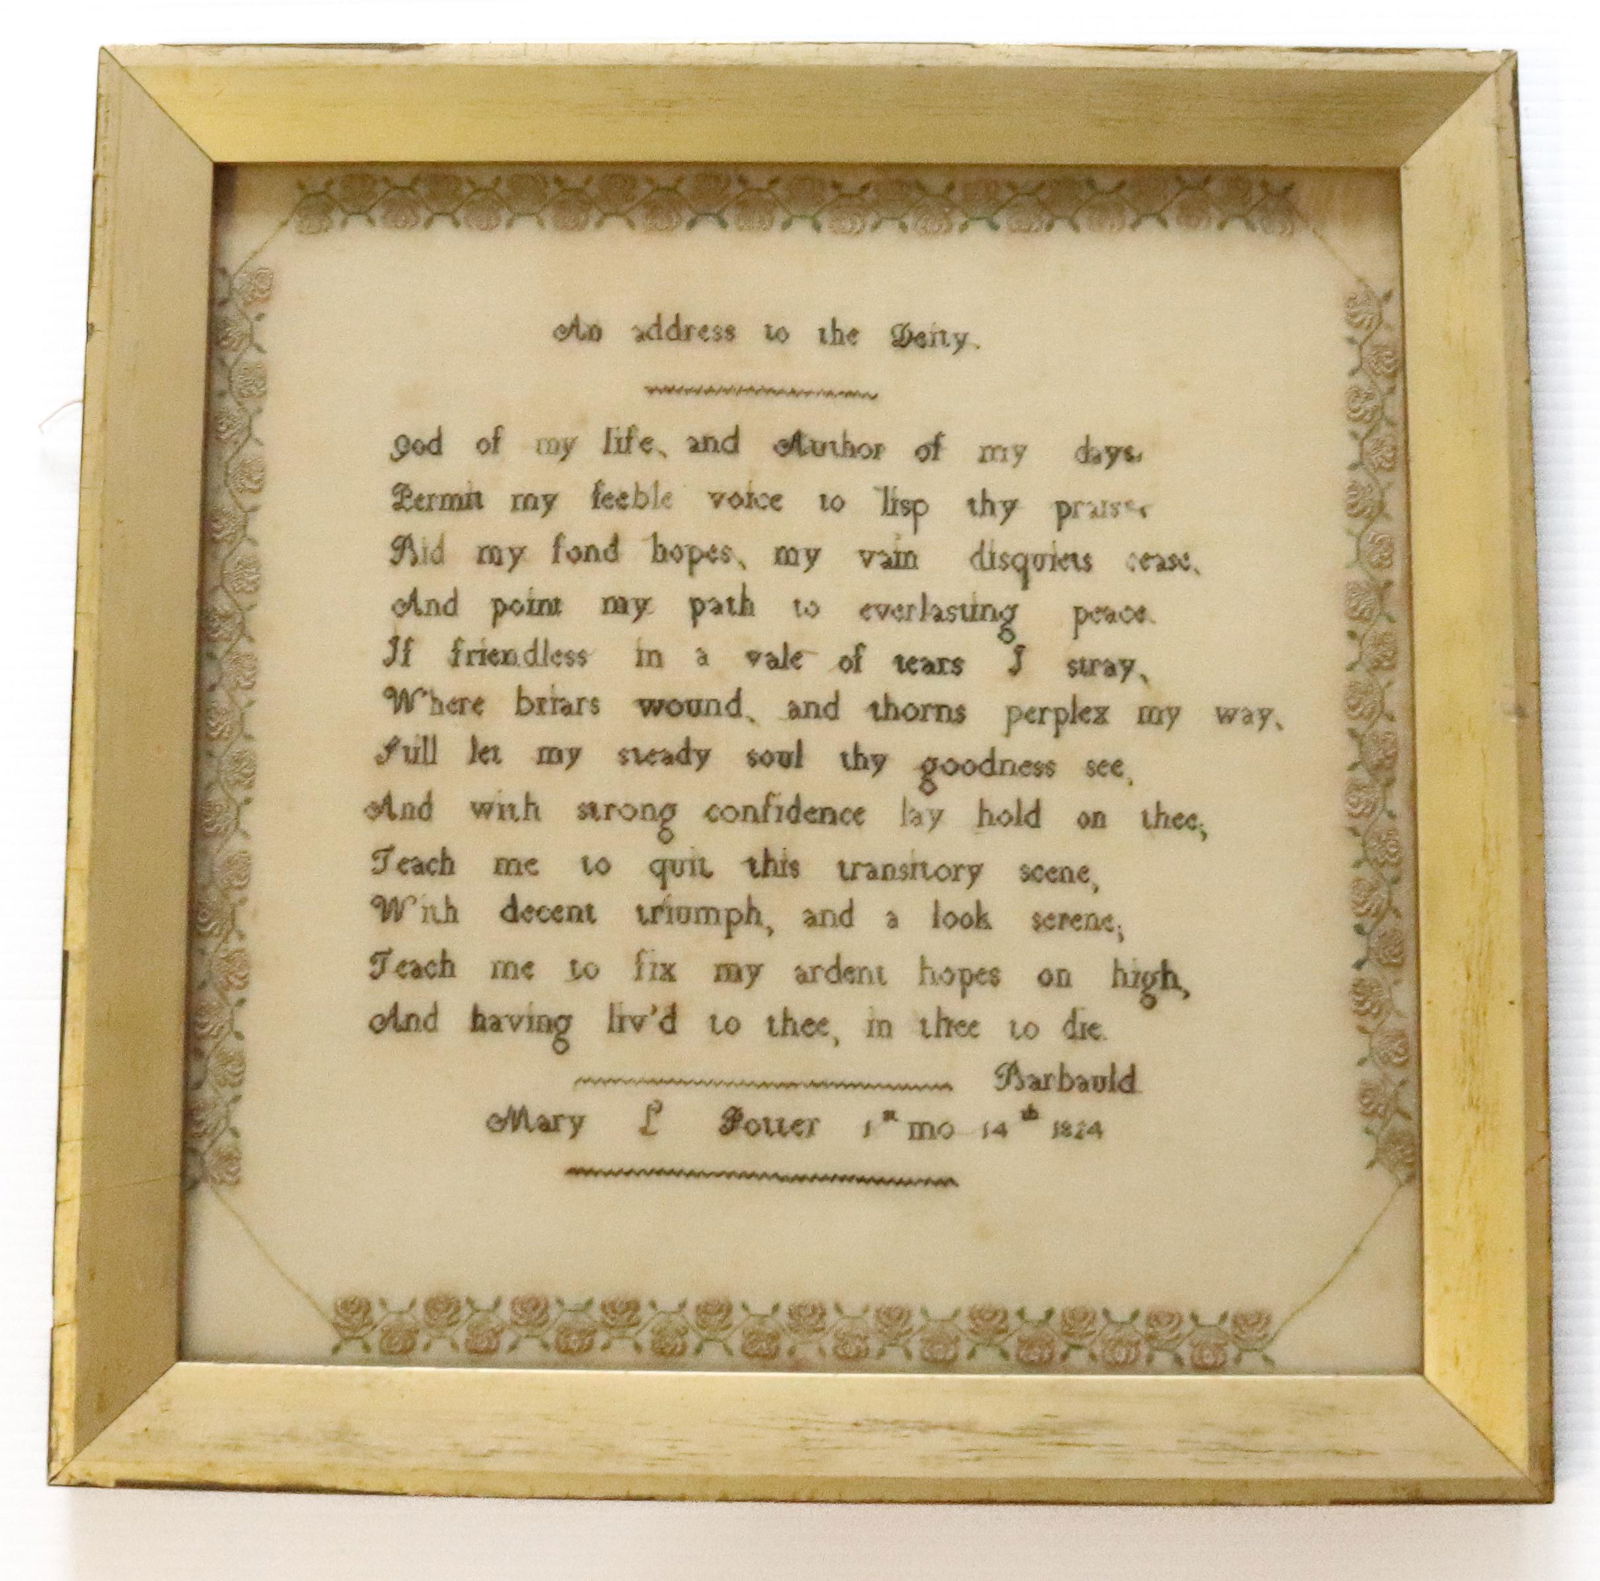 An address to the Deity.
God of my life, and Author of my days,
Permit my feeble voice to lisp thy praise
Aid my fond hopes, my vain disquiets cease,
And point my path to everlasting peace.
If friendless in a vale of tears I stray,
Where briars wound, and thorns perplex my way,
Full let my steady soul thy goodness see,
And with strong confidence lay hold on thee;
Teach me to quit this transitory scene,
With decent triumph, and a look serene;
Teach me to fix my ardent hopes on high,
And having liv'd to thee, in thee to die.
Barbauld
Mary L Potter 1st mo 14th 1824